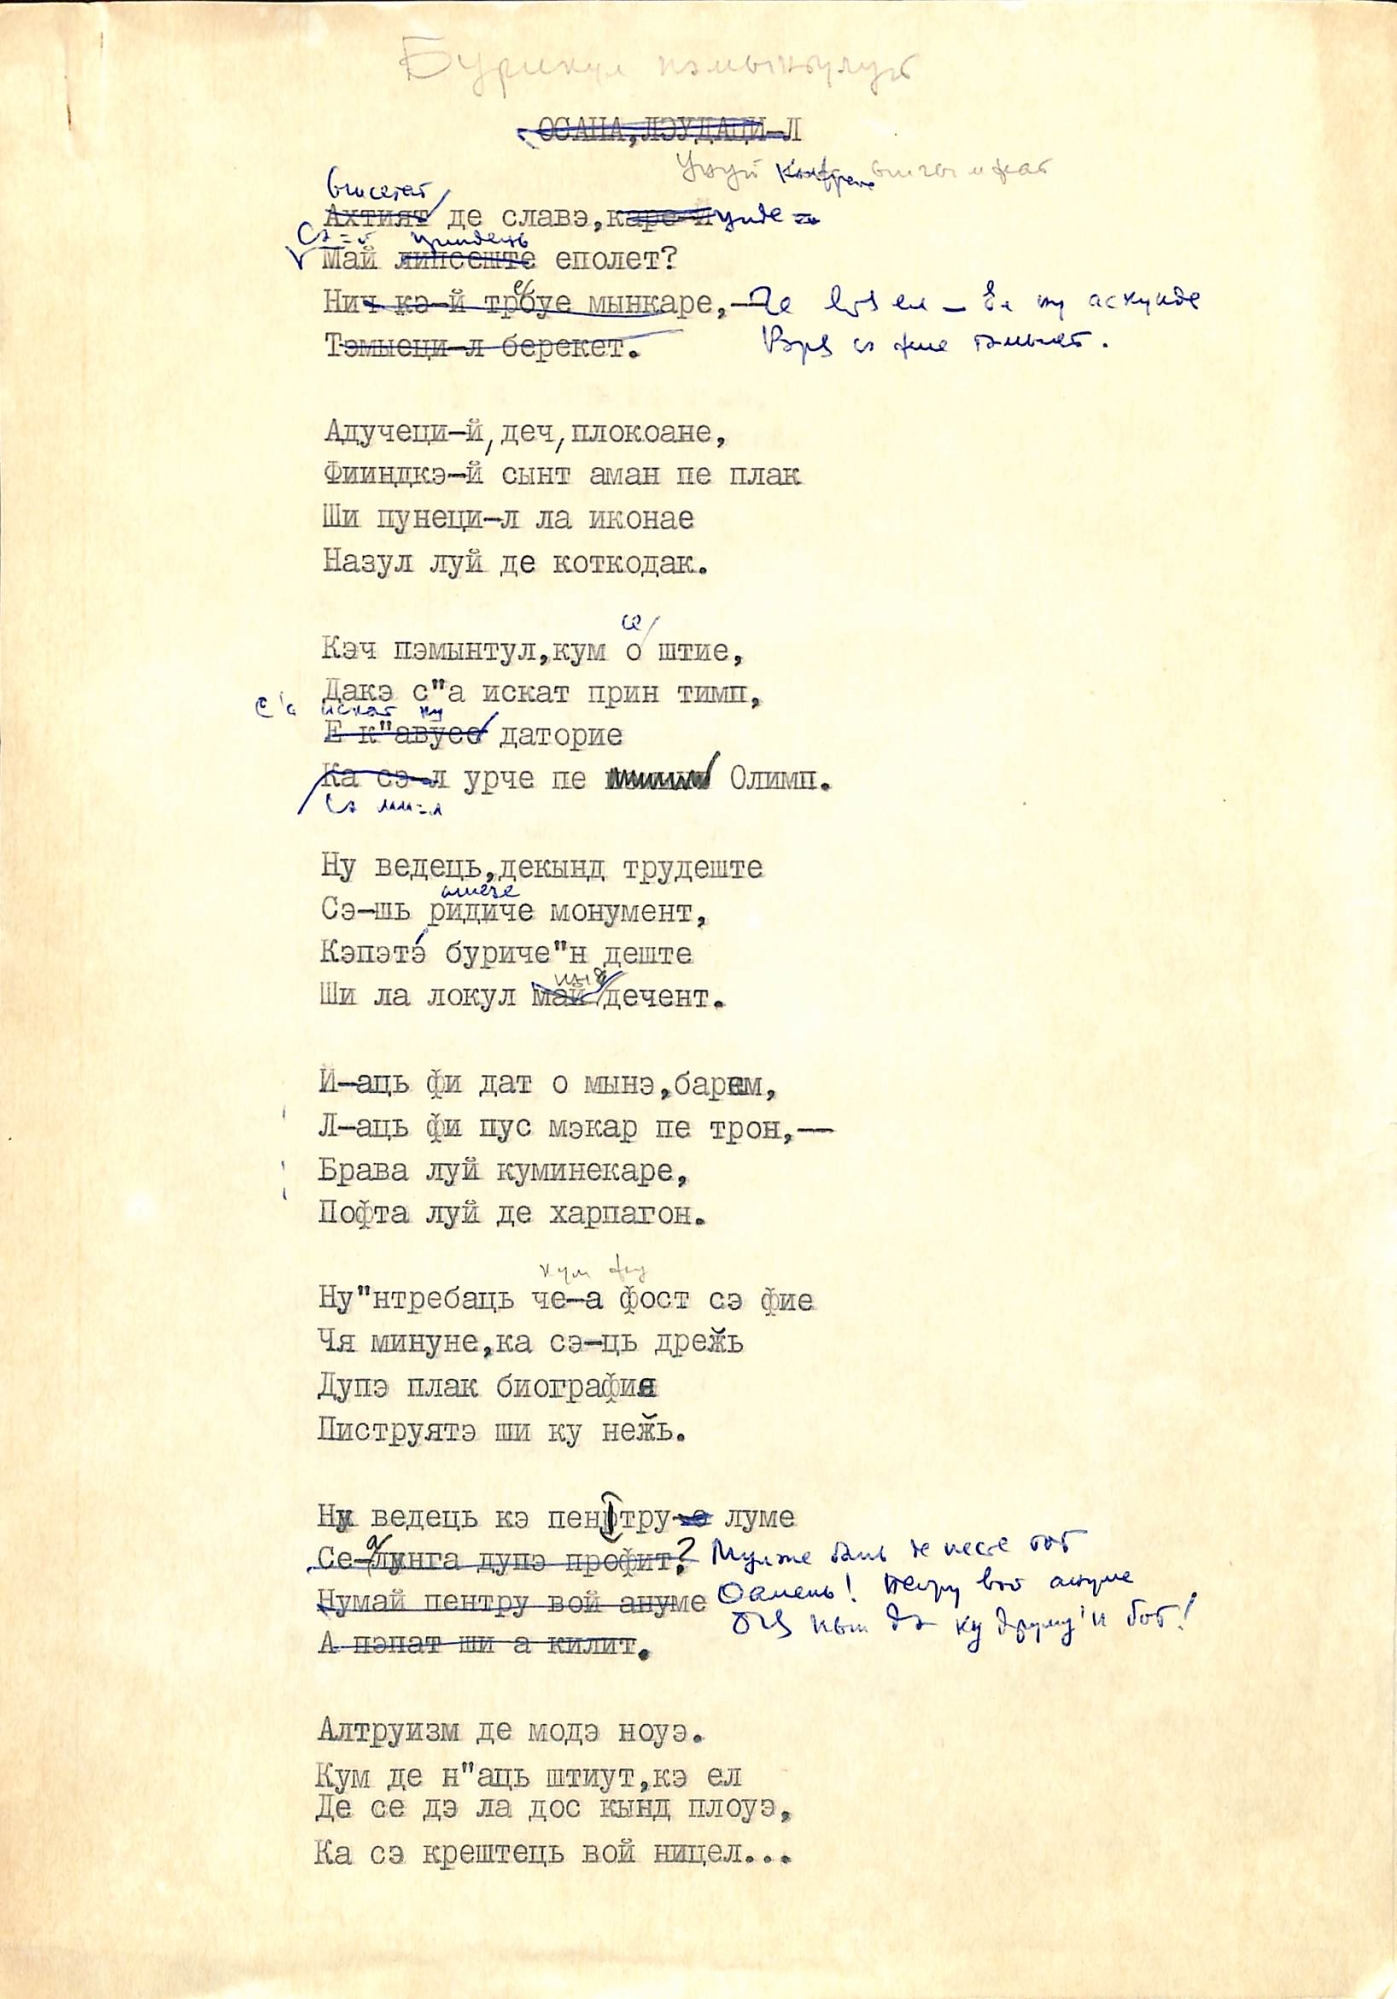 Бурикул пэмынтулуй
ОСАНА,ЛЭУДАЦИ-Л
Унуй
Ахтият де славэ,каре-й унде
Сэ-й
Май липсеште еполет?
Нич кэ-й требуе мынкаре,— Де ел — Ел ну аскунде
Тэмыеци-л берекет. сэ фие тэмыет.
Адучеци-й,деч,плокоане,
Фииндкэ-й сынт аман пе плак
Ши пунеци-л ла иконае
Назул луй де коткодак.
се
Кэч пэмынтул,кум о штие,
Дакэ с"а искат прин тимп,
с'а искат ку
Е к"авусо даторие
Ка сэ-л урче пе Олимп.
Сэ ми-л
Ну ведець,декынд трудеште
ашезе
Сэ-шь ридиче монумент,
Кэпэтэ буриче"н деште
Ши ла локул май дечент.
Й-аць фи дат о мынэ,барем,
Л-аць фи пус мэкар пе трон,—
Брава луй куминекаре,
Пофта луй де харпагон.
кум фу
Ну"нтребаць че-а фост сэ фие
Чя минуне,ка сэ-ць дрежь
Дупэ плак биография
Пиструятэ ши ку нежь.
Ну ведець кэ пентру-о луме
Се-алунга дупэ профит? Мулже де песте тот
Нумай пентру вой ануме Оамень! Пентру вой ануме
А пэпат ши а килит. дэ ку друму'н бот!
Алтруизм де модэ ноуэ.
Кум де н"аць штиут,кэ ел
Де се дэ ла дос кынд плоуэ,
Ка сэ крештець вой ницел...